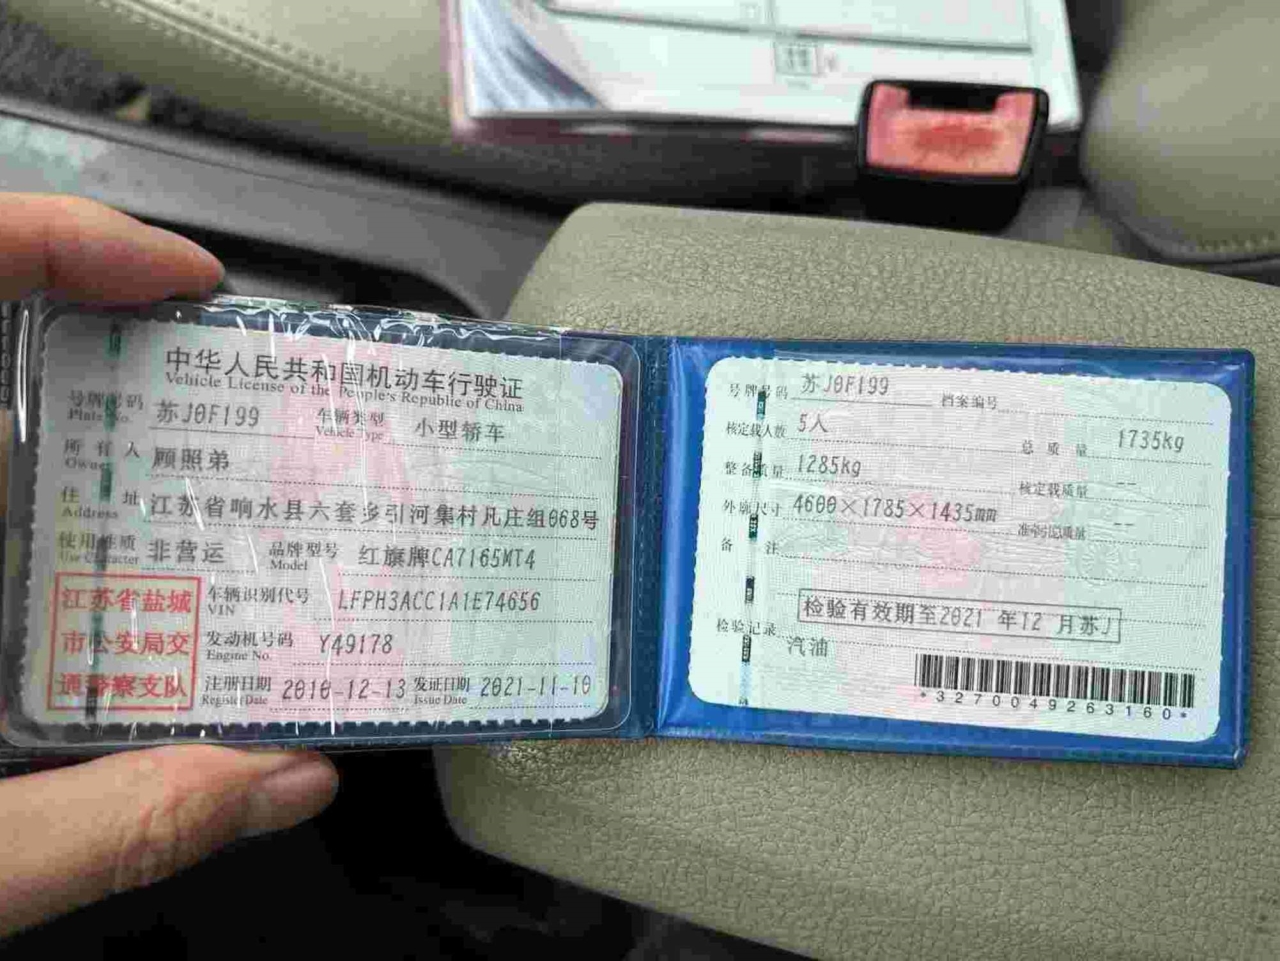 中华人民共和国机动车行驶证
Vehicle License of the People's Republic of China
号牌号码 苏J0F199 车辆类型 小型轿车
Plate No. Vehicle Type
所有人 顾照弟
Owner
住址 江苏省响水县六套乡引河集村凡庄组068号
Address
使用性质 非营运 品牌型号 红旗牌CA7165MT4
Use Character Model
江苏省盐城
市公安局交
通警察支队
车辆识别代号 LFPH3ACC1A1E74656
VIN
发动机号码 Y49178
Engine No.
注册日期 2010-12-13 发证日期 2021-11-10
Register Date Issue Date
号牌号码 苏J0F199 档案编号
核定载人数 5人 总质量 1735kg
整备质量 1285kg 核定载质量 --
外廓尺寸 4600×1785×1435mm 准牵引总质量 --
备注
检验有效期至2021 年12 月苏J
检验记录
汽油
*3270049263160*